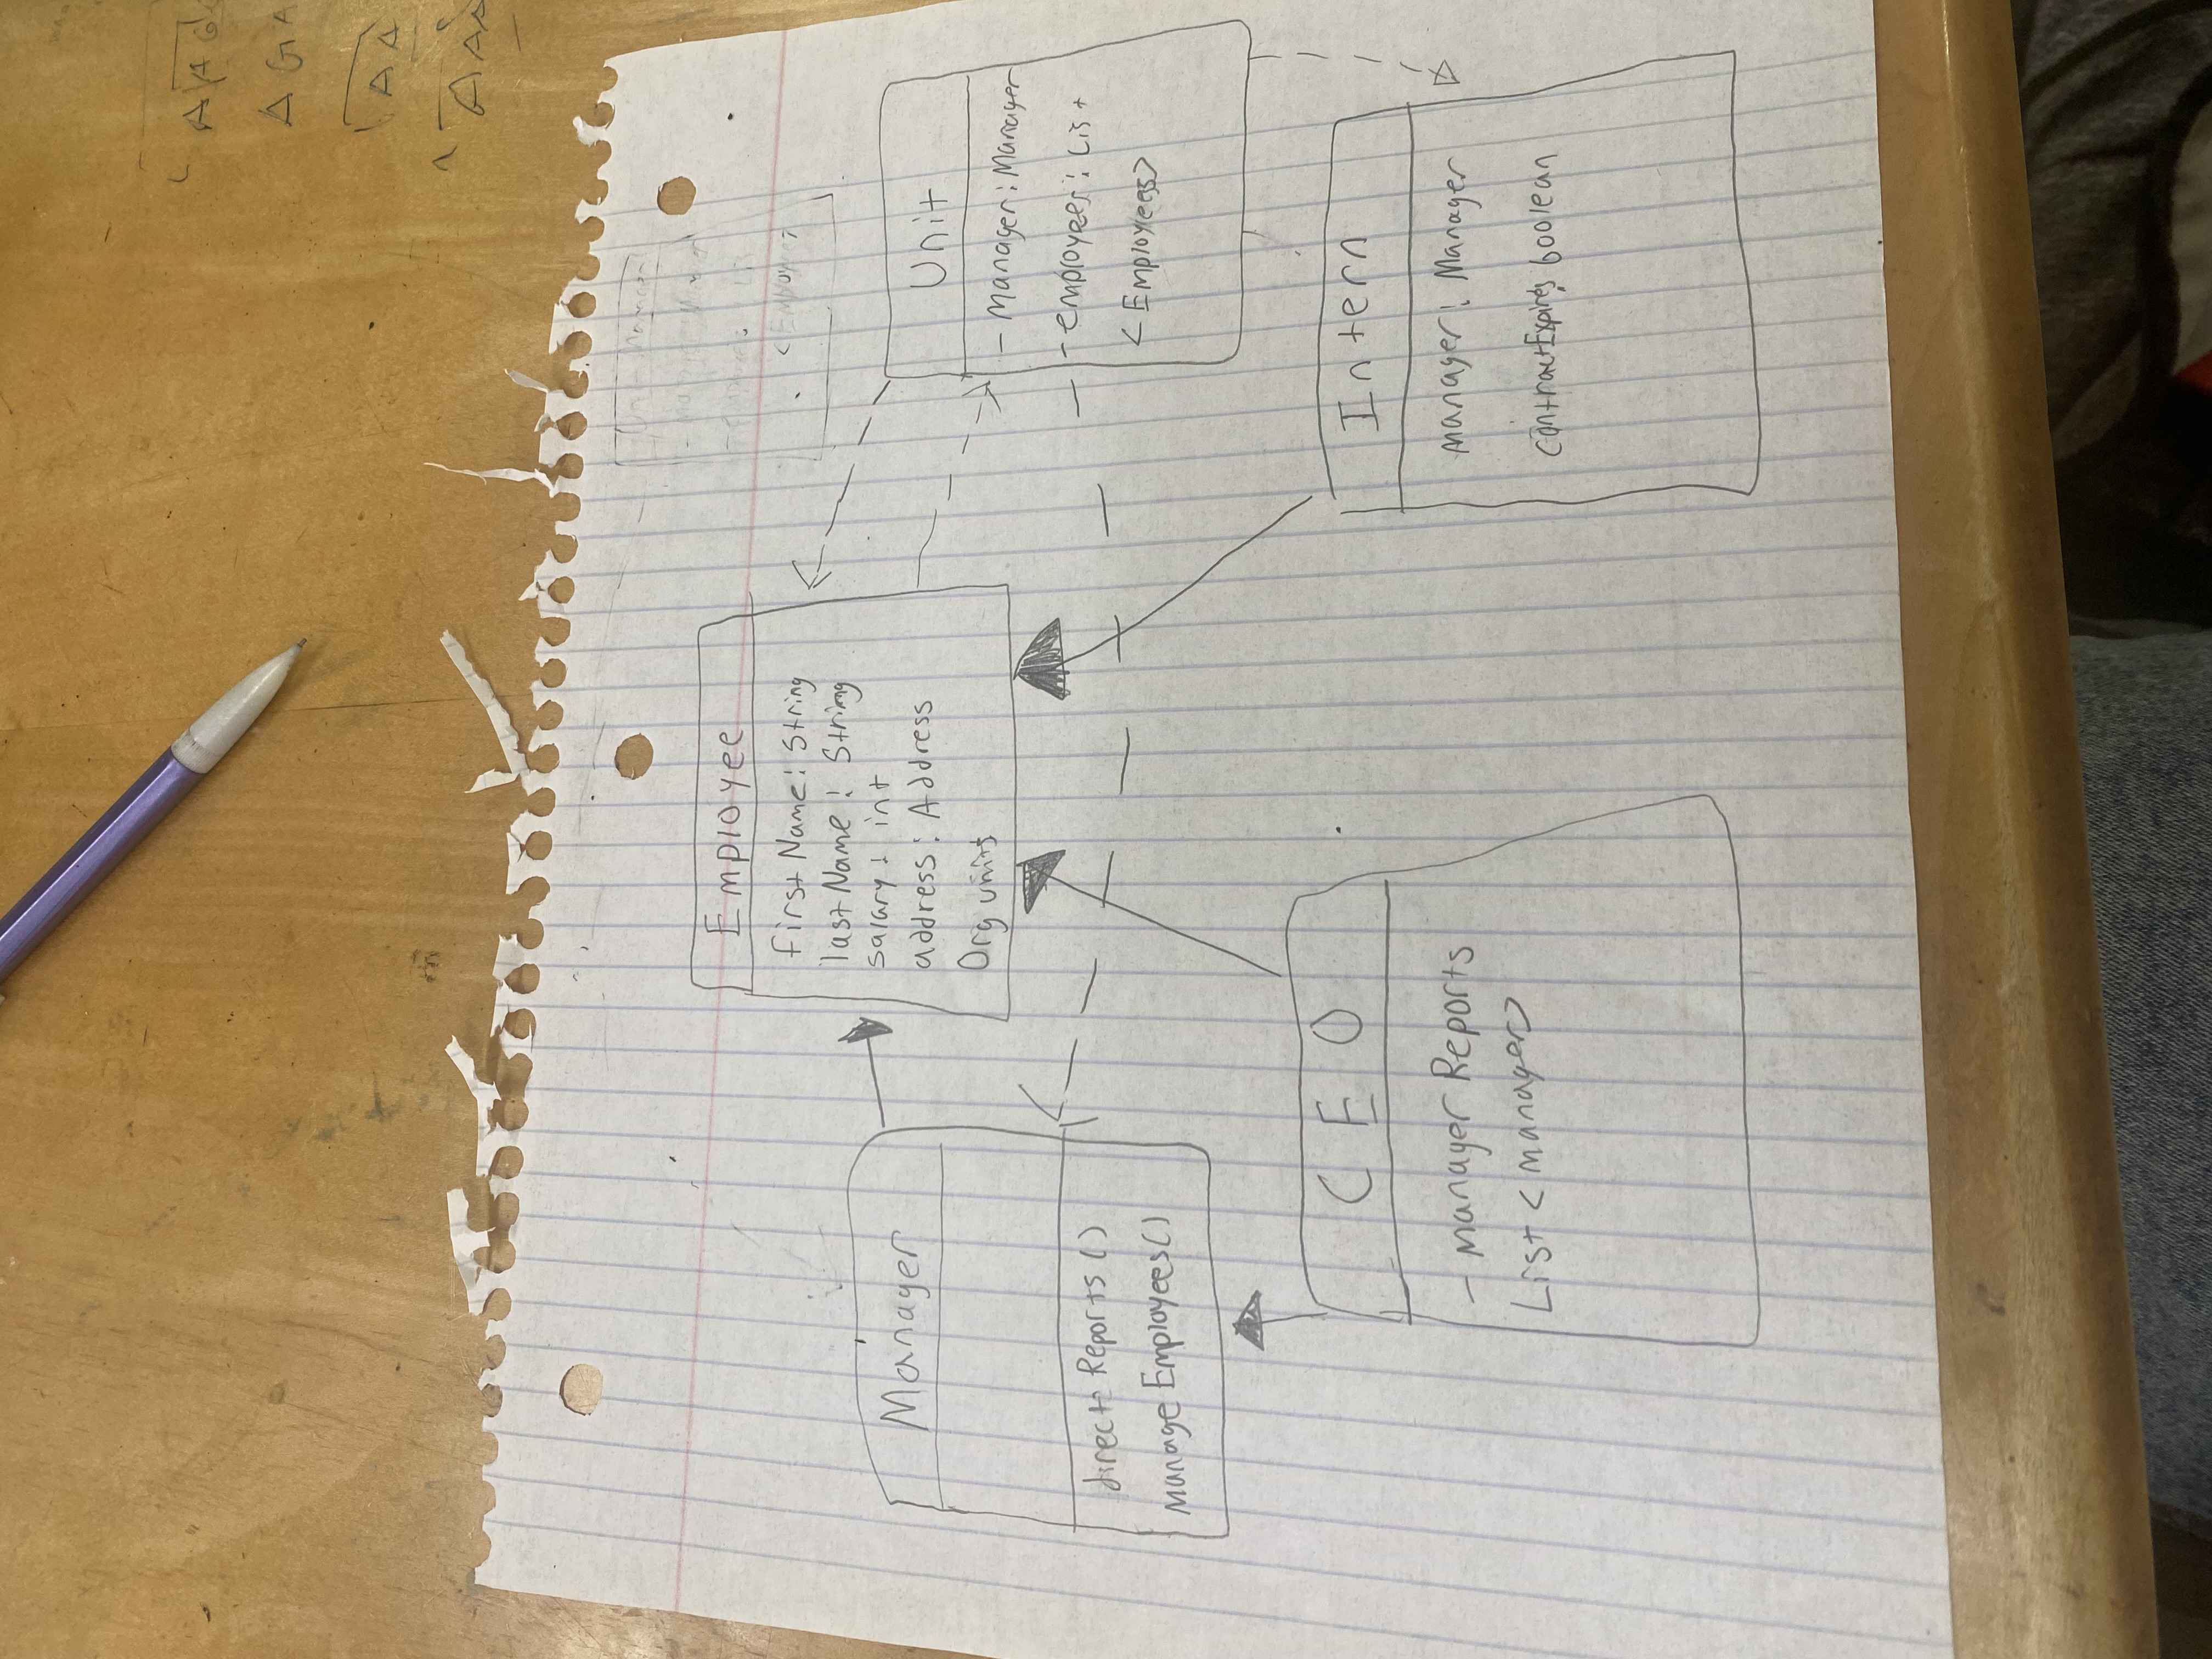 Employee
firstName: String
lastName: String
salary: int
address: Address
Org units
Manager
directReports()
manageEmployees()
Unit
- manager: Manager
- employees: List
<Employees>
CEO
- manager Reports
List <manager>
Intern
manager: Manager
contractExpires: boolean